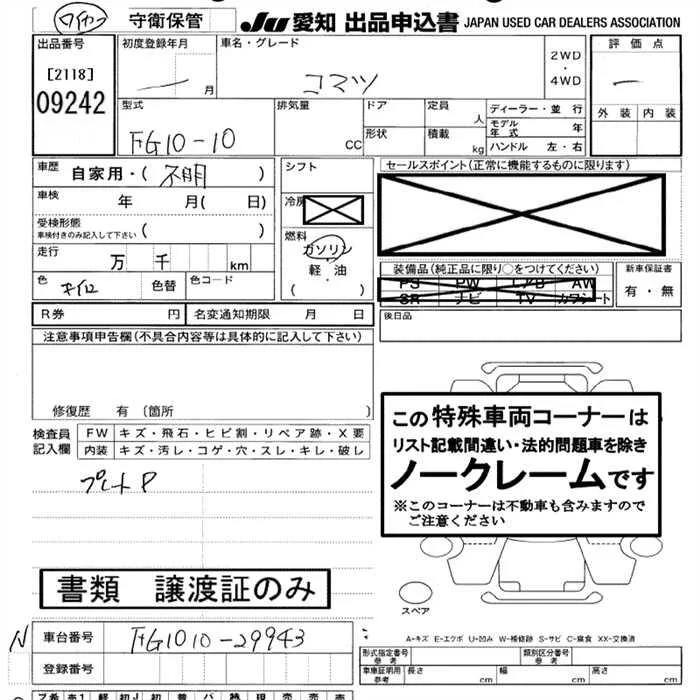 守衛保管
JU 愛知 出品申込書 JAPAN USED CAR DEALERS ASSOCIATION
出品番号
[2118]
09242
初度登録年月
月
車名・グレード
コマツ
2WD
・
4WD
評価点
外装 内装
型式
FG10-10
排気量
CC
ドア
形状
定員
人
積載
kg
ディーラー・並 行
モデル年式 年
ハンドル 左・右
車歴
自家用・( 不明 )
車検
年 月( 日)
受検形態
車検付きのみ記入して下さい ( )
走行
万 千 km
色
キイロ
色替
色コード
シフト
冷房
燃料
ガソリン
軽・油
( )
セールスポイント(正常に機能するものに限ります)
装備品(純正品に限り○をつけてください)
PS PW AW
SR ナビ TV カワシート
新車保証書
有・無
後日品
R券 円
名変通知期限 月 日
注意事項申告欄(不具合内容等は具体的に記入して下さい)
修復歴 有(箇所 )
検査員
記入欄
FW キズ・飛石・ヒビ割・リペア跡・X要
内装 キズ・汚レ・コゲ・穴・スレ・キレ・破レ
この特殊車両コーナーは
リスト記載間違い・法的問題車を除き
ノークレームです
※このコーナーは不動車も含みますので
ご注意ください
書類 譲渡証のみ
スペア
N
車台番号
FG1010-29943
登録番号
A-キズ E-エクボ U-凹み W-補修跡 S-サビ C-腐食 XX-交換済
形式指定番号
参考
類別区分番号
参考
車車証明用
参考
長さ
幅
高さ
cm